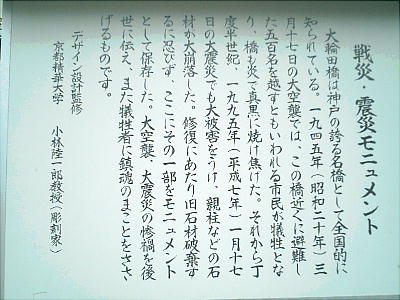 戦災・震災モニュメント
大輪田橋は神戸の誇る名橋として全国的に
知られている。一九四五年（昭和二十年）三
月十七日の大空襲では、この橋近くに避難し
た五百名を越すともいわれる市民が犠牲とな
り、橋も炎で真黒に焼け焦げた。それから丁
度半世紀、一九九五年（平成七年）一月十七
日の大震災でも大被害をうけ、親柱などの石
材が大崩落した。修復にあたり旧石材破棄す
るに忍びず、ここにその一部をモニュメント
として保存した。大空襲、大震災の惨禍を後
世に伝え、また犠牲者に鎮魂のまことをささ
げるものです。
デザイン設計監修
京都精華大学　小林陸一郎教授（彫刻家）